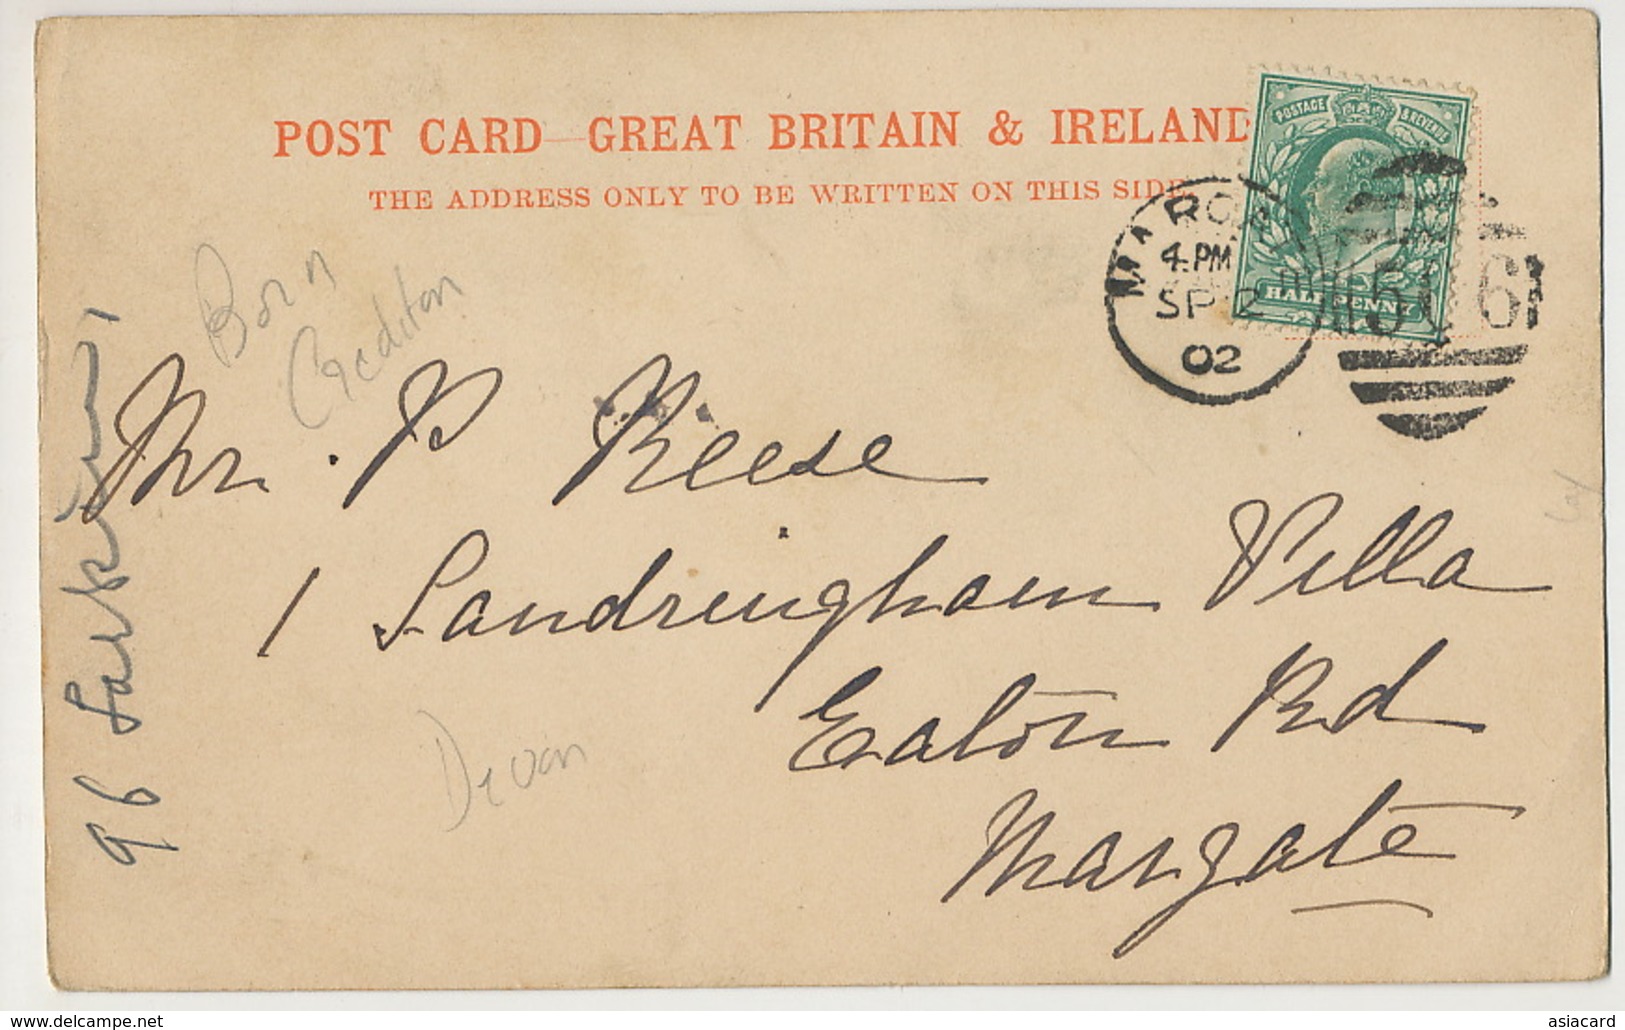 POST CARD—GREAT BRITAIN & IRELAND
THE ADDRESS ONLY TO BE WRITTEN ON THIS SIDE.
POSTAGE & REVENUE
HALFPENNY
4.PM
SP 2
02
Born
Crediton
Mr. P Reese
1 Sandringham Villa
Eaton Rd
Margate
Devon
96
www.delcampe.net
asiacard